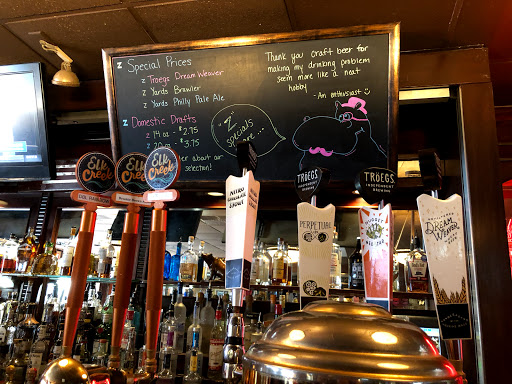 Z Special Prices
Z Troegs Dream Weaver
Z Yards Brawler
Z Yards Philly Pale Ale
Z Domestic Drafts
Z 14 oz - $2.75
Z 20 oz - $3.75
er about our
selection!
"Z"
specials
Thank you craft beer for
making my drinking problem
seem more like a neat
hobby
-An enthusiast
Elk
Creek
Elk
Creek
Elk
Creek
TRÖEGS
INDEPENDENT
PERPETUAL
TRÖEGS
INDEPENDENT
NUGGET
NECTAR
DREAM
WEAVER